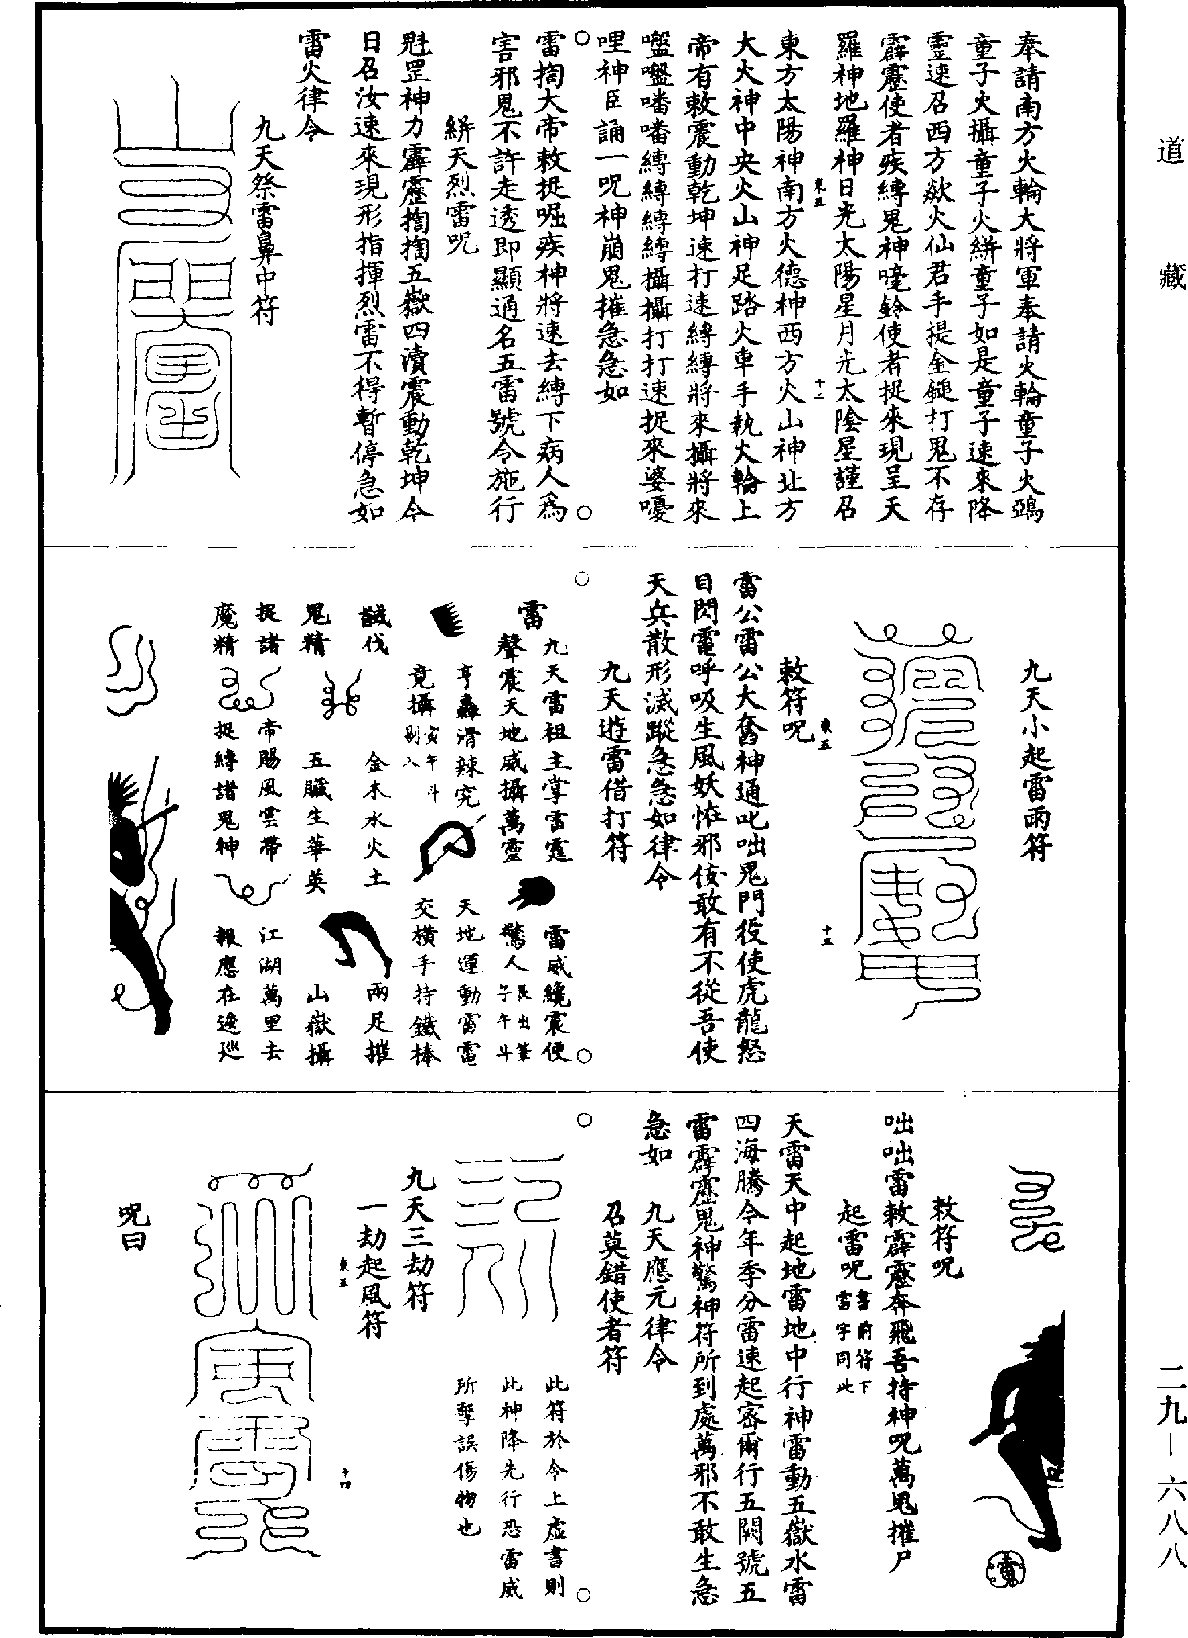 道藏
奉請南方火輪大將軍奉請火輪童子火鵶
童子火攝童子火絣童子如是童子速來降
靈速召西方歘火仙君手提金鎚打鬼不存
霹靂使者疾縛鬼神嚏鈴使者捉來現呈天
羅神地羅神日光太陽星月光太陰星謹召
東方太陽神南方火德神西方火山神北方
大火神中央火山神足踏火車手執火輪上
帝有敕震動乾坤速打速縛縛將來攝將來
囕囕噃噃縛縛縛攝攝打打速捉來婆嚘
哩神臣誦一呪神崩鬼摧急急如
雷搊大帝敕捉啒疾神將速去縛下病人爲
害邪鬼不許走透即顯通名五雷號令施行
絣天烈雷呪
魁罡神力霹靂搊搊五嶽四瀆震動乾坤令
日召汝速來現形指揮烈雷不得暫停急如
雷火律令
九天祭雷鼻中符
九天小起雷雨符
敕符呪
雷公雷公大奮神通叱咄鬼門役使虎龍怒
目閃電呼吸生風妖怪邪侫敢有不從吾使
天兵散形滅蹤急急如律令
九天遊雷借打符
雷
九天雷祖主掌雷霆
聲震天地威攝萬靈
雷威纔震便
驚人
亨轟滑辣究
天地運動雷電
竟攝
寅午斗
剔八
交橫手持鐵棒
馘伐
金木水火土
兩足摧
鬼精
五臟生華英
山嶽攝
捉諸
帝賜風雲帶
江湖萬里去
魔精
捉縛諸鬼神
報應在逡巡
敕符呪
咄咄雷敕霹靂奔飛吾持神呪萬鬼摧尸
起雷呪
書前符下
雷字同此
天雷天中起地雷地中行神雷動五嶽水雷
四海騰今年季分雷速起密爾行五闕號五
雷霹靂鬼神驚神符所到處萬邪不敢生急
急如
九天應元律令
召莫錯使者符
此符於令上虛書則
此神降先行恐雷威
所擊誤傷物也
九天三劫符
一劫起風符
呪曰
二九－六八八